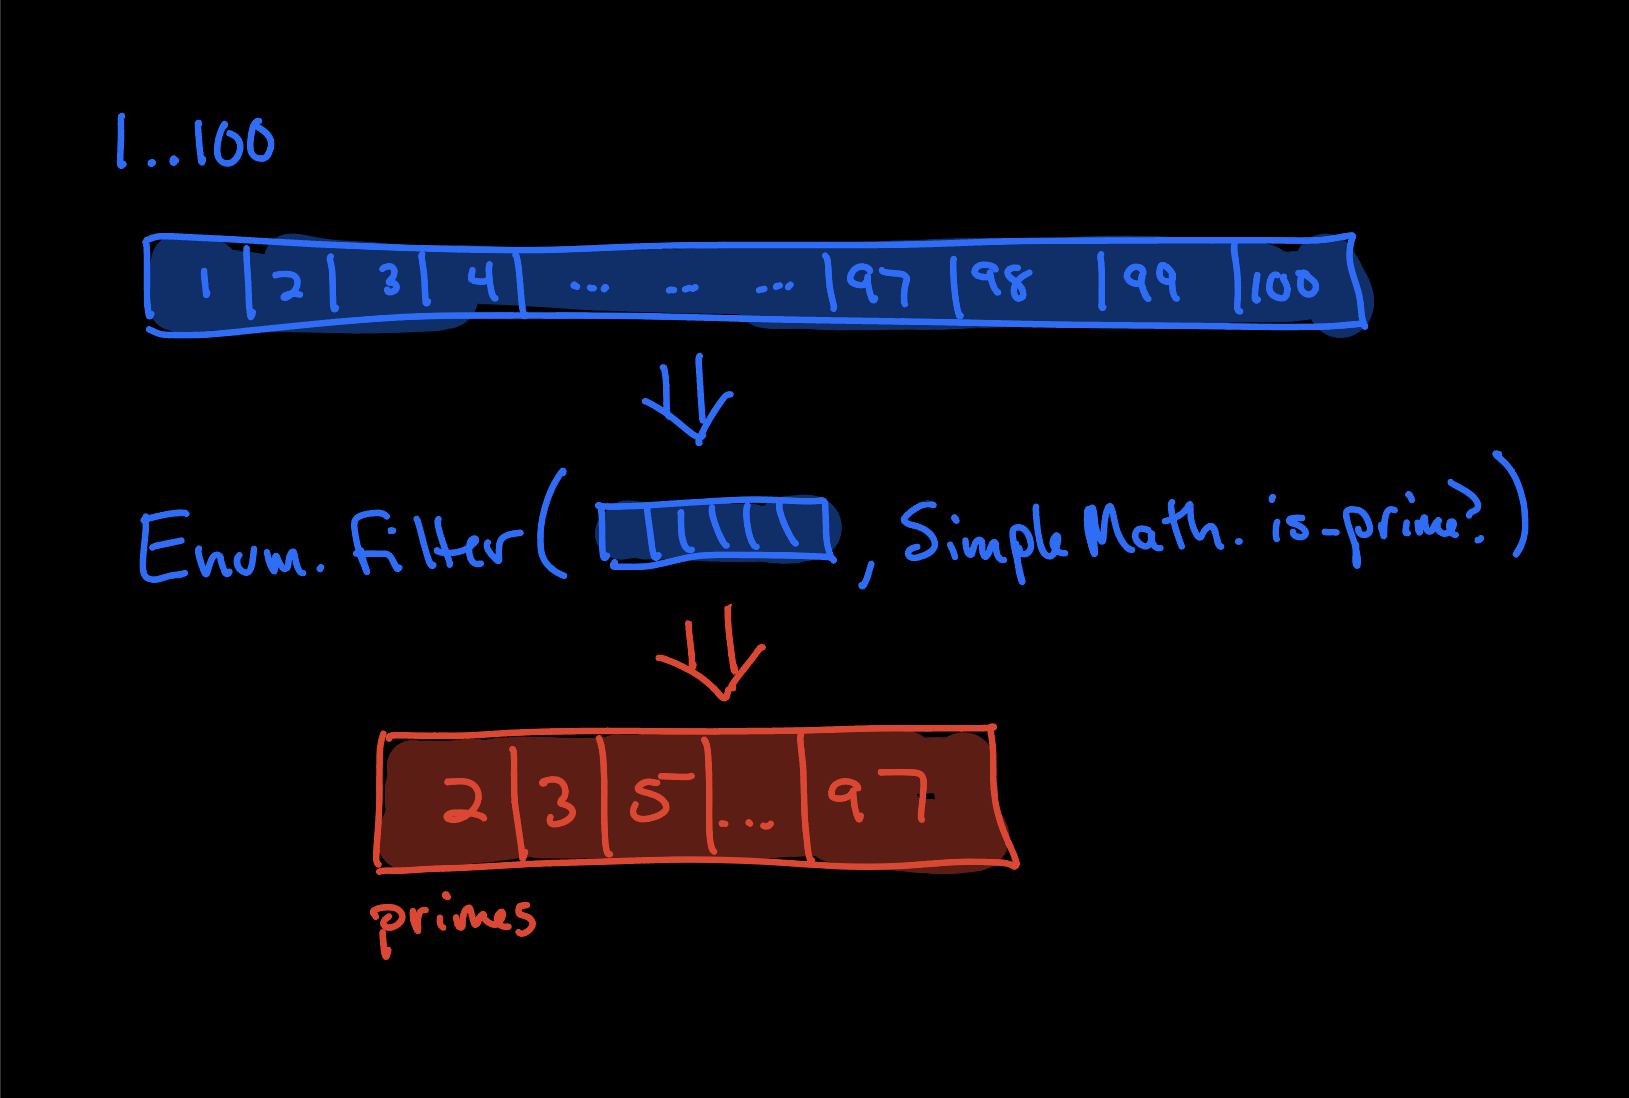 1..100
1 2 3 4 ... ... ... 97 98 99 100
Enum.filter( , SimpleMath.is-prime?)
2 3 5 ... 97
primes